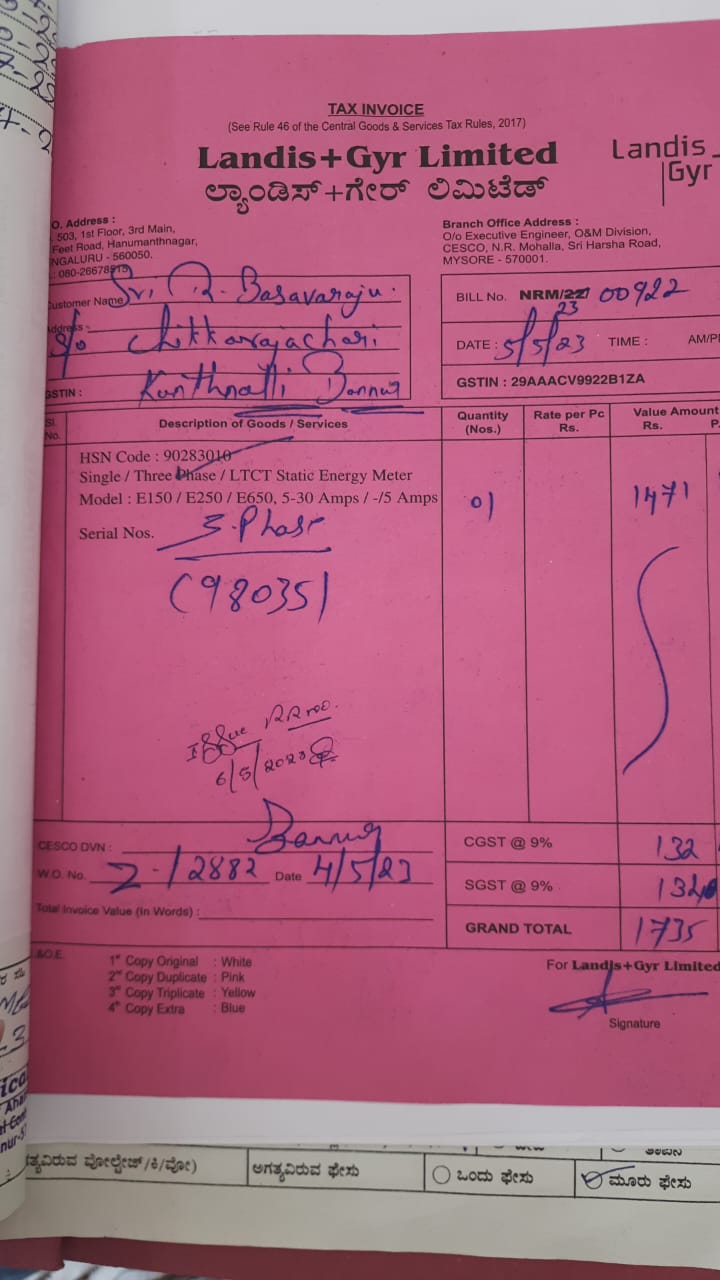 TAX INVOICE
(See Rule 46 of the Central Goods & Services Tax Rules, 2017)
Landis+Gyr Limited
ಲ್ಯಾಂಡಿಸ್+ಗೇರ್ ಲಿಮಿಟೆಡ್
Landis
Gyr
O. Address :
503, 1st Floor, 3rd Main,
Feet Road, Hanumanthnagar,
NGALURU - 560050.
: 080-26678515
Branch Office Address :
O/o Executive Engineer, O&M Division,
CESCO, N.R. Mohalla, Sri Harsha Road,
MYSORE - 570001.
Customer Name Sri R. Basavaraju.
Address :- S/o Chikkarajachari
GSTIN : Bannur
BILL No. NRM/22/ 23 00922
DATE : 5/5/23 TIME : AM/P
GSTIN : 29AAACV9922B1ZA
Sl. No. Description of Goods / Services Quantity (Nos.) Rate per Pc Rs. Value Amount Rs. P.
HSN Code : 90283010
Single / Three Phase / LTCT Static Energy Meter
Model : E150 / E250 / E650, 5-30 Amps / -/5 Amps 01 1471
Serial Nos. 3-Phase
(98035)
Issue RR no.
6/5/2023
CESCO DVN : Bannur
CGST @ 9% 132
W.O. No. 2-/2882 Date 4/5/23
SGST @ 9% 132
Total Invoice Value (In Words) :
GRAND TOTAL 1735
&O.E.
1st Copy Original : White
2nd Copy Duplicate : Pink
3rd Copy Triplicate : Yellow
4th Copy Extra : Blue
For Landis+Gyr Limited
Signature
ಅಗತ್ಯವಿರುವ ಫೇಸು
ಒಂದು ಫೇಸು
ಮೂರು ಫೇಸು